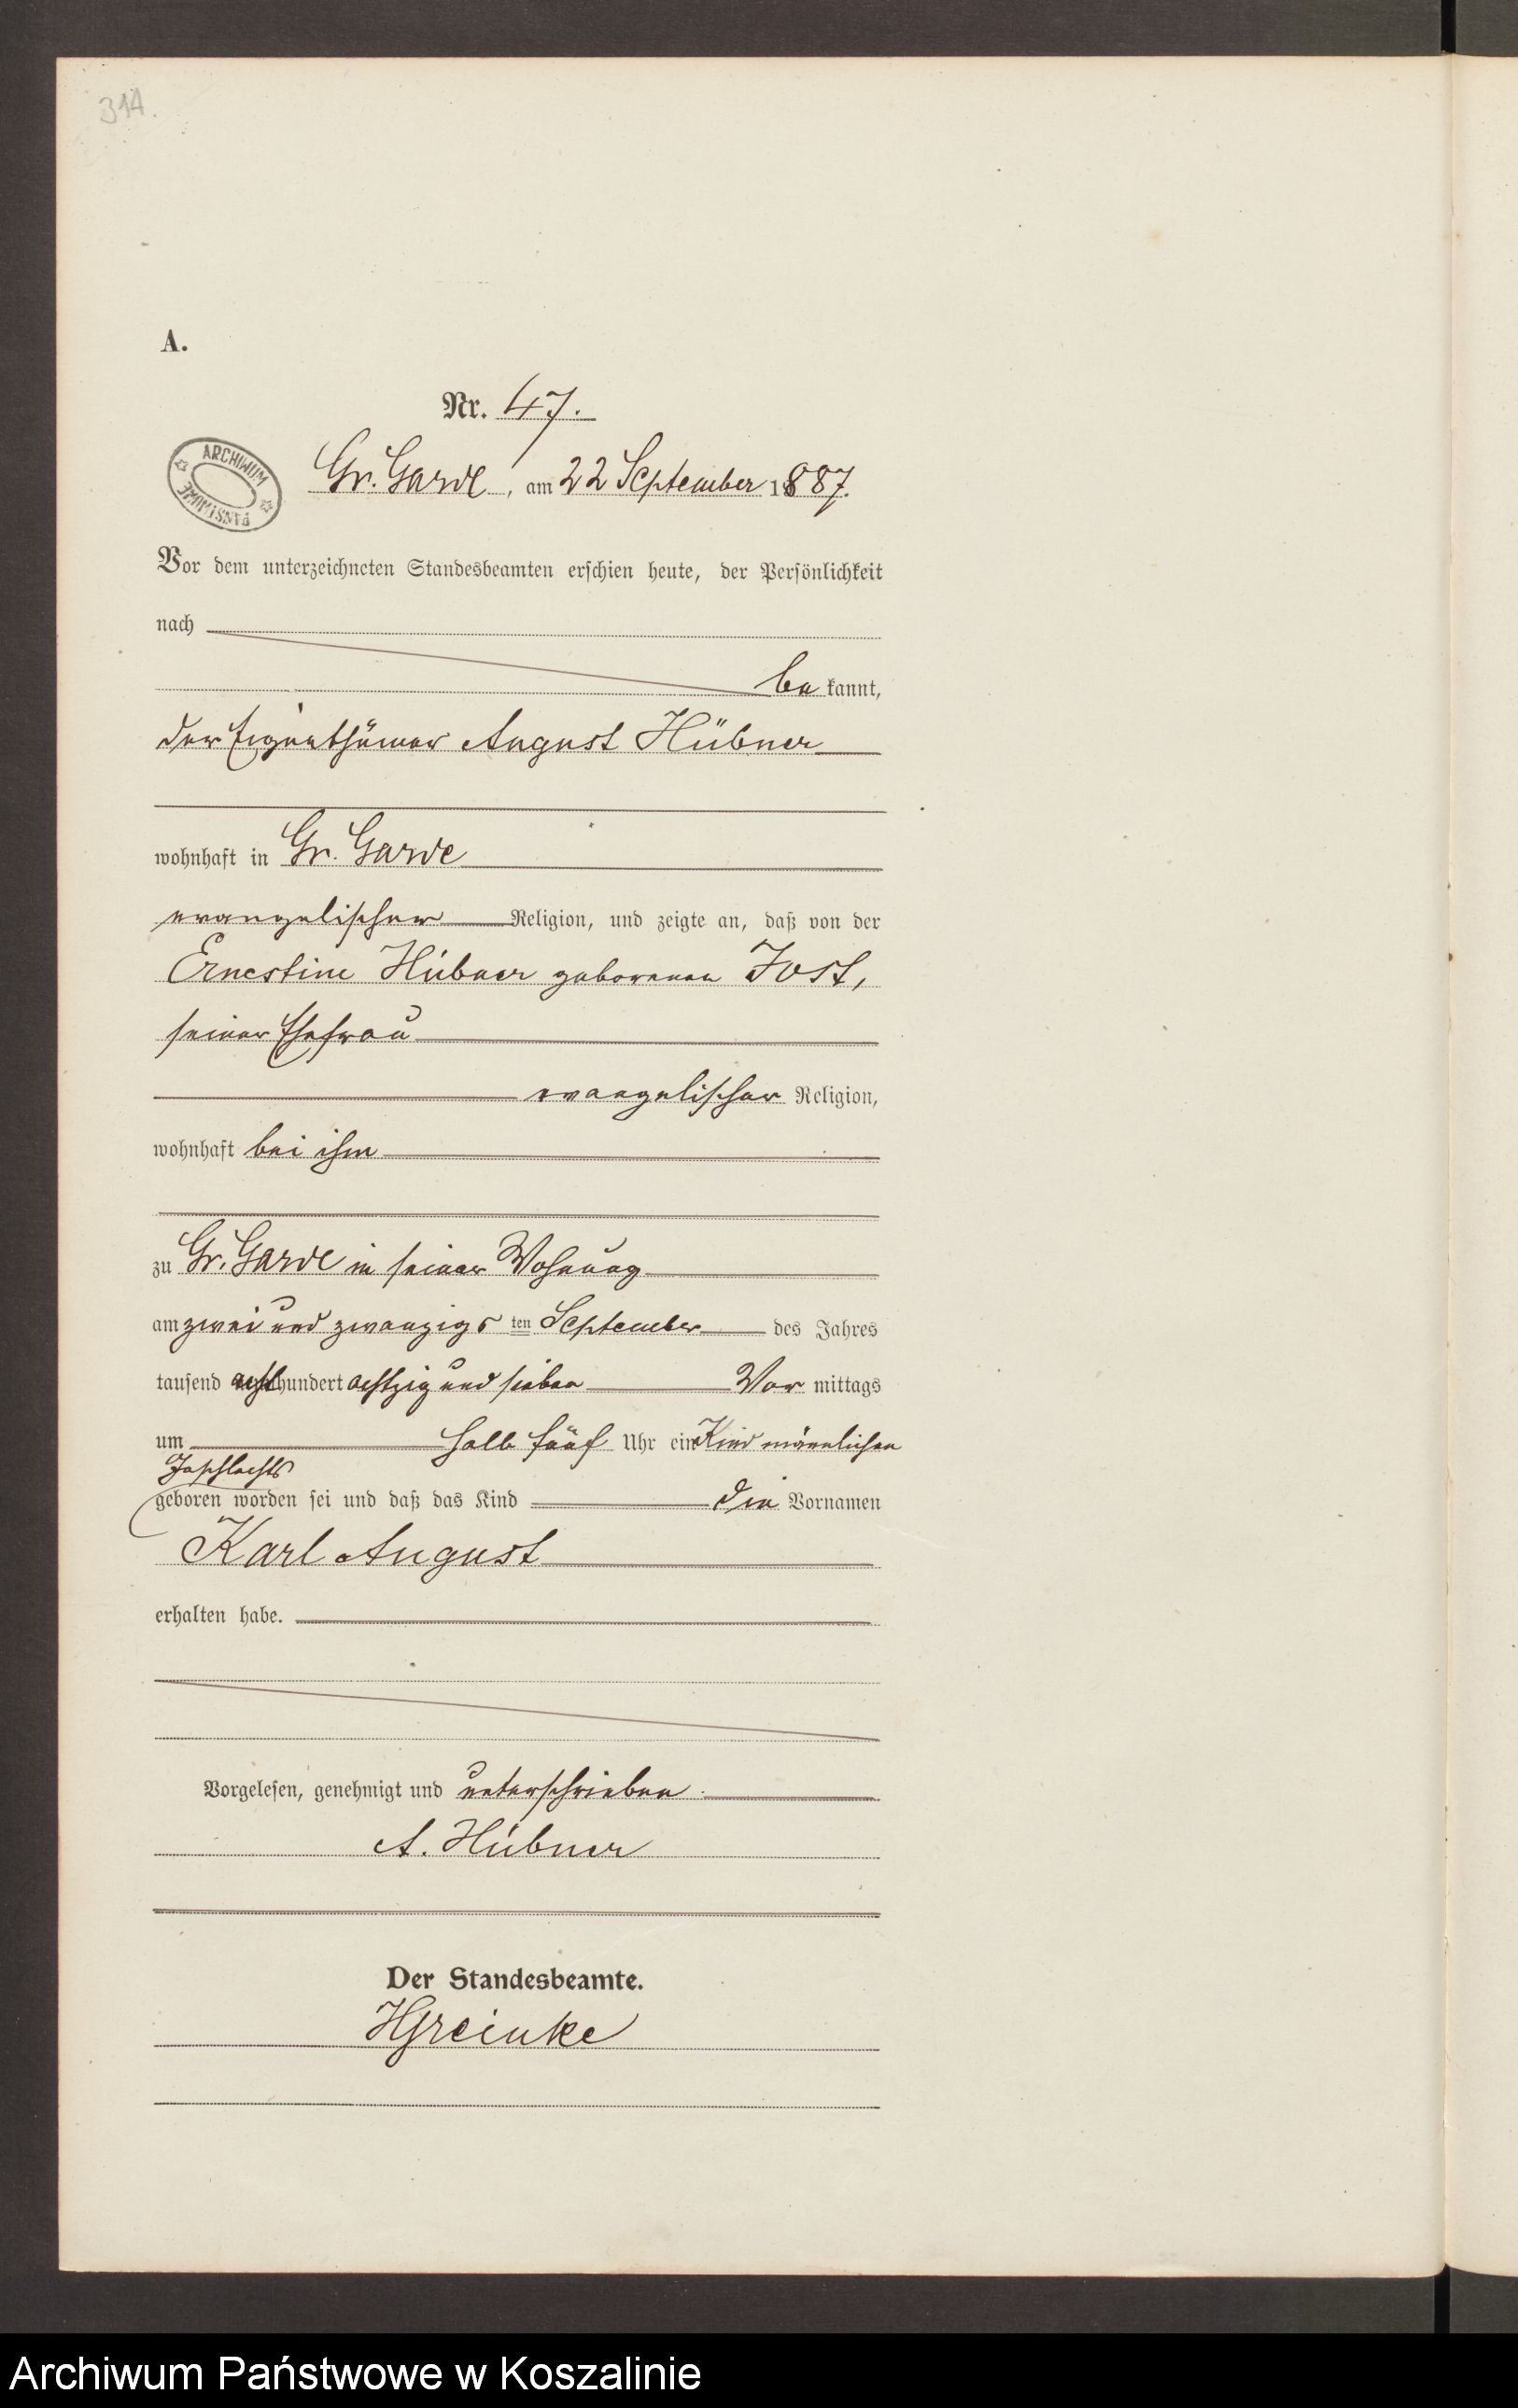 314.
A.
Nr. 47.
ARCHIWUM PAŃSTWOWE
Gr. Garde, am 22 September 1887.
Vor dem unterzeichneten Standesbeamten erschien heute, der Persönlichkeit
nach
be kannt,
der Eigenthümer August Hübner
wohnhaft in Gr. Garde
evangelischer Religion, und zeigte an, daß von der
Ernestine Hübner geborenen Jost,
seiner Ehefrau
evangelischer Religion,
wohnhaft bei ihm
zu Gr. Garde in seiner Wohnung
am zwei und zwanzigs ten September des Jahres
tausend acht hundert achtzig und sieben Vor mittags
um halb fünf Uhr ein Kind männlichen
Geschlechts
geboren worden sei und daß das Kind die Vornamen
Karl August
erhalten habe.
Vorgelesen, genehmigt und unterschrieben
A. Hübner
Der Standesbeamte.
HGreinke
Archiwum Państwowe w Koszalinie